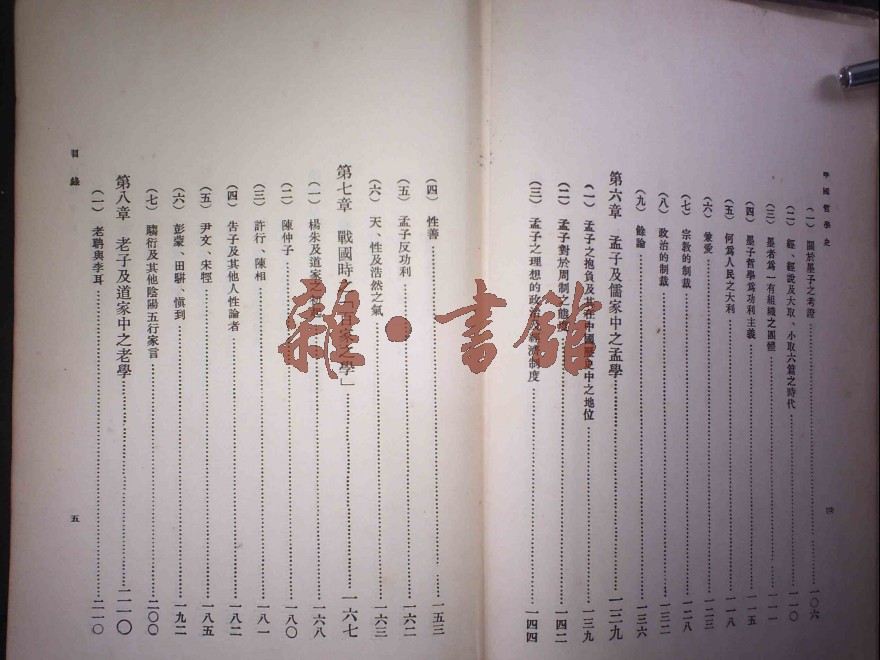 中國哲學史
（一）關於墨子之考證 一〇六
（二）經、經說及大取、小取六篇之時代 一一〇
（三）墨者爲一有組織之團體 一一一
（四）墨子哲學爲功利主義 一一五
（五）何爲人民之大利 一一八
（六）兼愛 一二三
（七）宗教的制裁 一二八
（八）政治的制裁 一三二
（九）餘論 一三六
第六章 孟子及儒家中之孟學 一三九
（一）孟子之抱負及其在中國歷史中之地位 一三九
（二）孟子對於周制之態度 一四二
（三）孟子之理想的政治及經濟制度 一四四
四
（四）性善 一五三
（五）孟子反功利 一六二
（六）天、性及浩然之氣 一六三
第七章 戰國時之「百家之學」 一六七
（一）楊朱及道家之初起 一六八
（二）陳仲子 一八〇
（三）許行、陳相 一八一
（四）告子及其他人性論者 一八二
（五）尹文、宋牼 一八五
（六）彭蒙、田駢、愼到 一九二
（七）騶衍及其他陰陽五行家言 二〇〇
第八章 老子及道家中之老學 二一〇
（一）老聃與李耳 二一〇
目錄
五
雜·書館